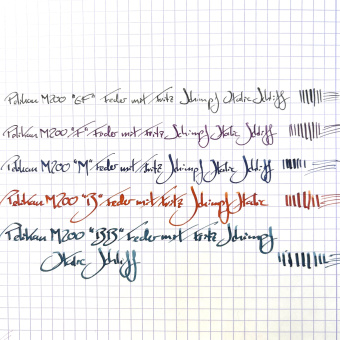 Pelikan M200 "EF" Feder mit Fritz Schimpf Italic Schliff
Pelikan M200 "F" Feder mit Fritz Schimpf Italic Schliff
Pelikan M200 "M" Feder mit Fritz Schimpf Italic Schliff
Pelikan M200 "B" Feder mit Fritz Schimpf Italic
Pelikan M200 "BB" Feder mit Fritz Schimpf
Italic Schliff